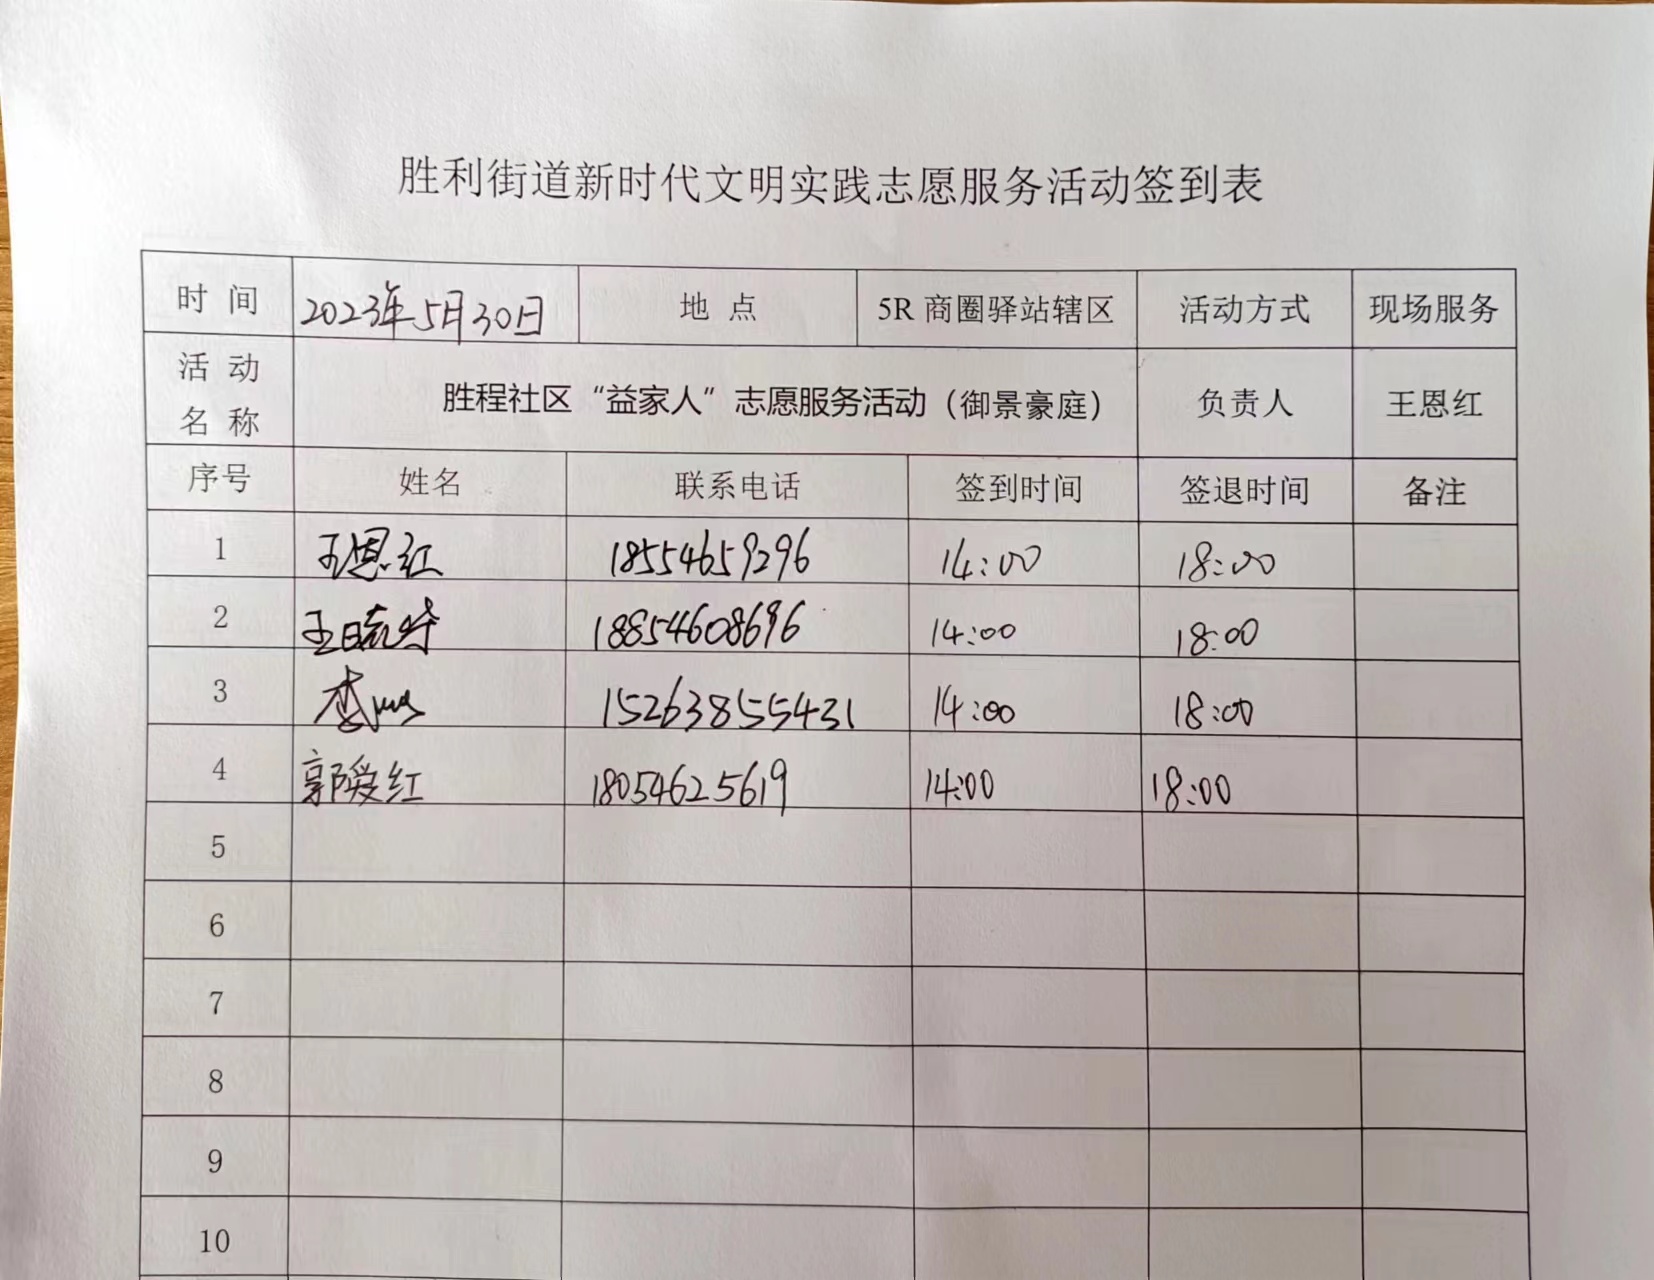 胜利街道新时代文明实践志愿服务活动签到表
时 间 2023年5月30日 地 点 5R 商圈驿站辖区 活动方式 现场服务
活 动 名 称 胜程社区“益家人”志愿服务活动（御景豪庭） 负责人 王恩红
序号 姓名 联系电话 签到时间 签退时间 备注
1 王恩红 18554659296 14:00 18:00
2 王 18854608696 14:00 18:00
3 李 15263855431 14:00 18:00
4 郭爱红 18054625619 14:00 18:00
5
6
7
8
9
10